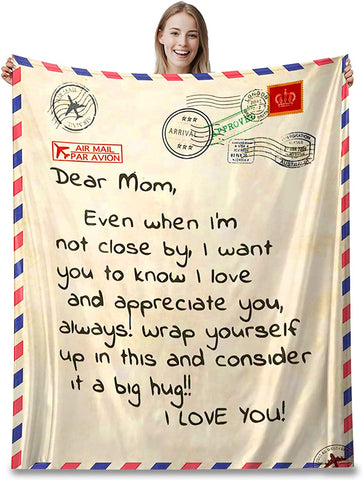 LONDON
APPROVED
ARRIVAL
AIR MAIL
PAR AVION
Dear Mom,
Even when I'm
not close by, I want
you to know I love
and appreciate you,
always! wrap yourself
up in this and consider
it a big hug!!
I LOVE YOU!